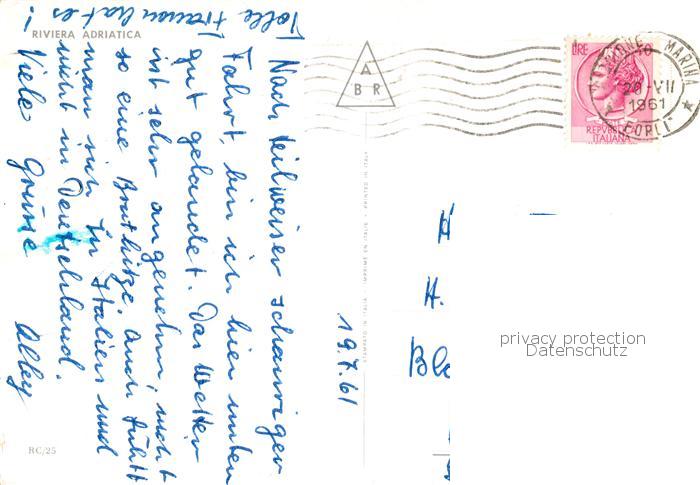 RIVIERA ADRIATICA
Tolle Frauen hat es!
Nach teilweiser schauriger
Fahrt, bin ich hier unten
gut gelandet. Das Wetter
ist sehr angenehm, nicht
so eine Bruthitze. Auch fühlt
man sich in Italien und
nicht in Deutschland.
Viele Grüsse
19.7.61
RC/25
STAMPATO IN ITALIA - IMPRIMÉ EN ITALIE - PRINTED IN ITALY
A
B R
LIRE 10
REPUBBLICA
ITALIANA
MARINA
VII
1961
FORLI
H
H.
Blo
privacy protection
Datenschutz